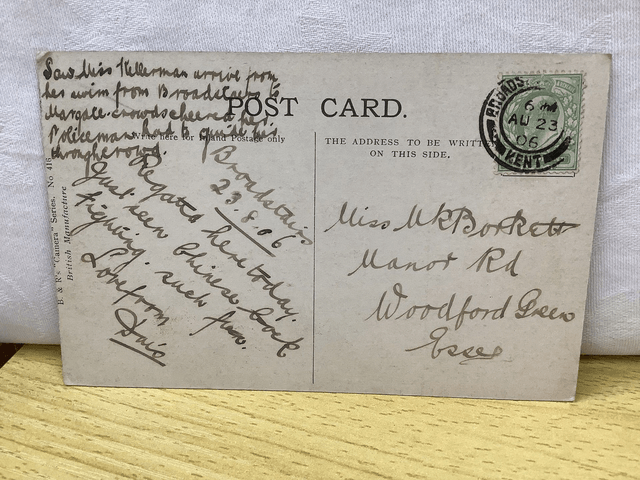 Saw Miss Kellerman arrive from
her swim from Broadstairs to
Margate. crowds cheered her.
Policeman had to guide his
through crowd.
POST CARD.
Write here for Inland Postage only
THE ADDRESS TO BE WRITTE
ON THIS SIDE.
BROADS
6 PM
AU 23
06
KENT
B. & R's "Camera" Series. No 416
British Manufacture
Broadstairs
23.8.06
Regatta here today.
Just seen Chinese Cock
Fighting. such fun.
Love from
Miss M K Borkett
Manor Rd
Woodford Green
Essex